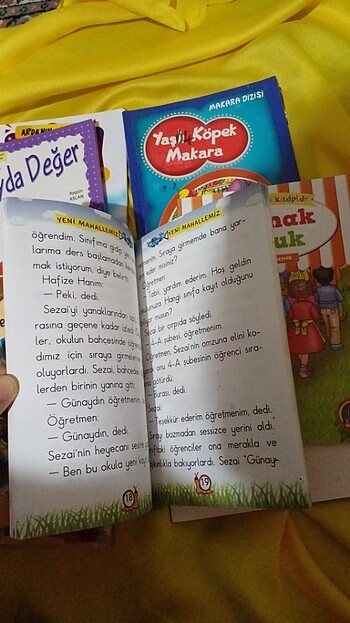 MAKARA DİZİSİ
ARDA'NIN
Yaşlı Köpek
Makara
yda Değer
Aygün
ASLAN
kitaplar
YENİ MAHALLEMİZ
öğrendim. Sınıfıma gidip
larıma ders başlamadan
mak istiyorum, diye belirtti.
Hafize Hanım:
— Peki, dedi.
Sezai'yi yanaklarından
rasına geçene kadar izledi.
ler, okulun bahçesinde öğren
dımız için sıraya girmelerini
oluyorlardı. Sezai, bahçedeki
lerden birinin yanına gitti:
— Günaydın öğretmenim,
Öğretmen:
— Günaydın, dedi.
Sezai'nin heyecanı sesine
— Ben bu okula yeni kayıt
18
YENİ MAHALLEMİZ
Sıraya girmemde bana yar-
eder misiniz?
Öğretmen:
— Tabii, yardım ederim. Hoş geldin
Hangi sınıfa kayıt olduğunu
musun?
Sezai bir çırpıda söyledi.
4-A şubesi, öğretmenim.
Öğretmen, Sezai'nin omzuna elini ko-
onu 4-A şubesinin öğrenci sıra-
götürdü:
Burası, dedi.
Sezai:
Teşekkür ederim öğretmenim, dedi.
Sırayı bozmadan sessizce yerini aldı.
öğrenciler ona merakla ve
bakıyorlardı. Sezai "Günay-
19